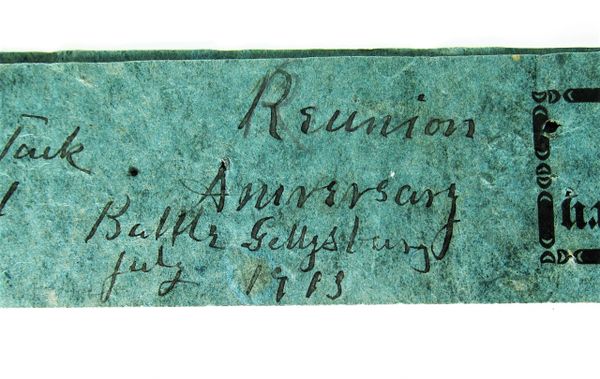 Reunion
Aniversary
Battle Gettysburg
July 1913